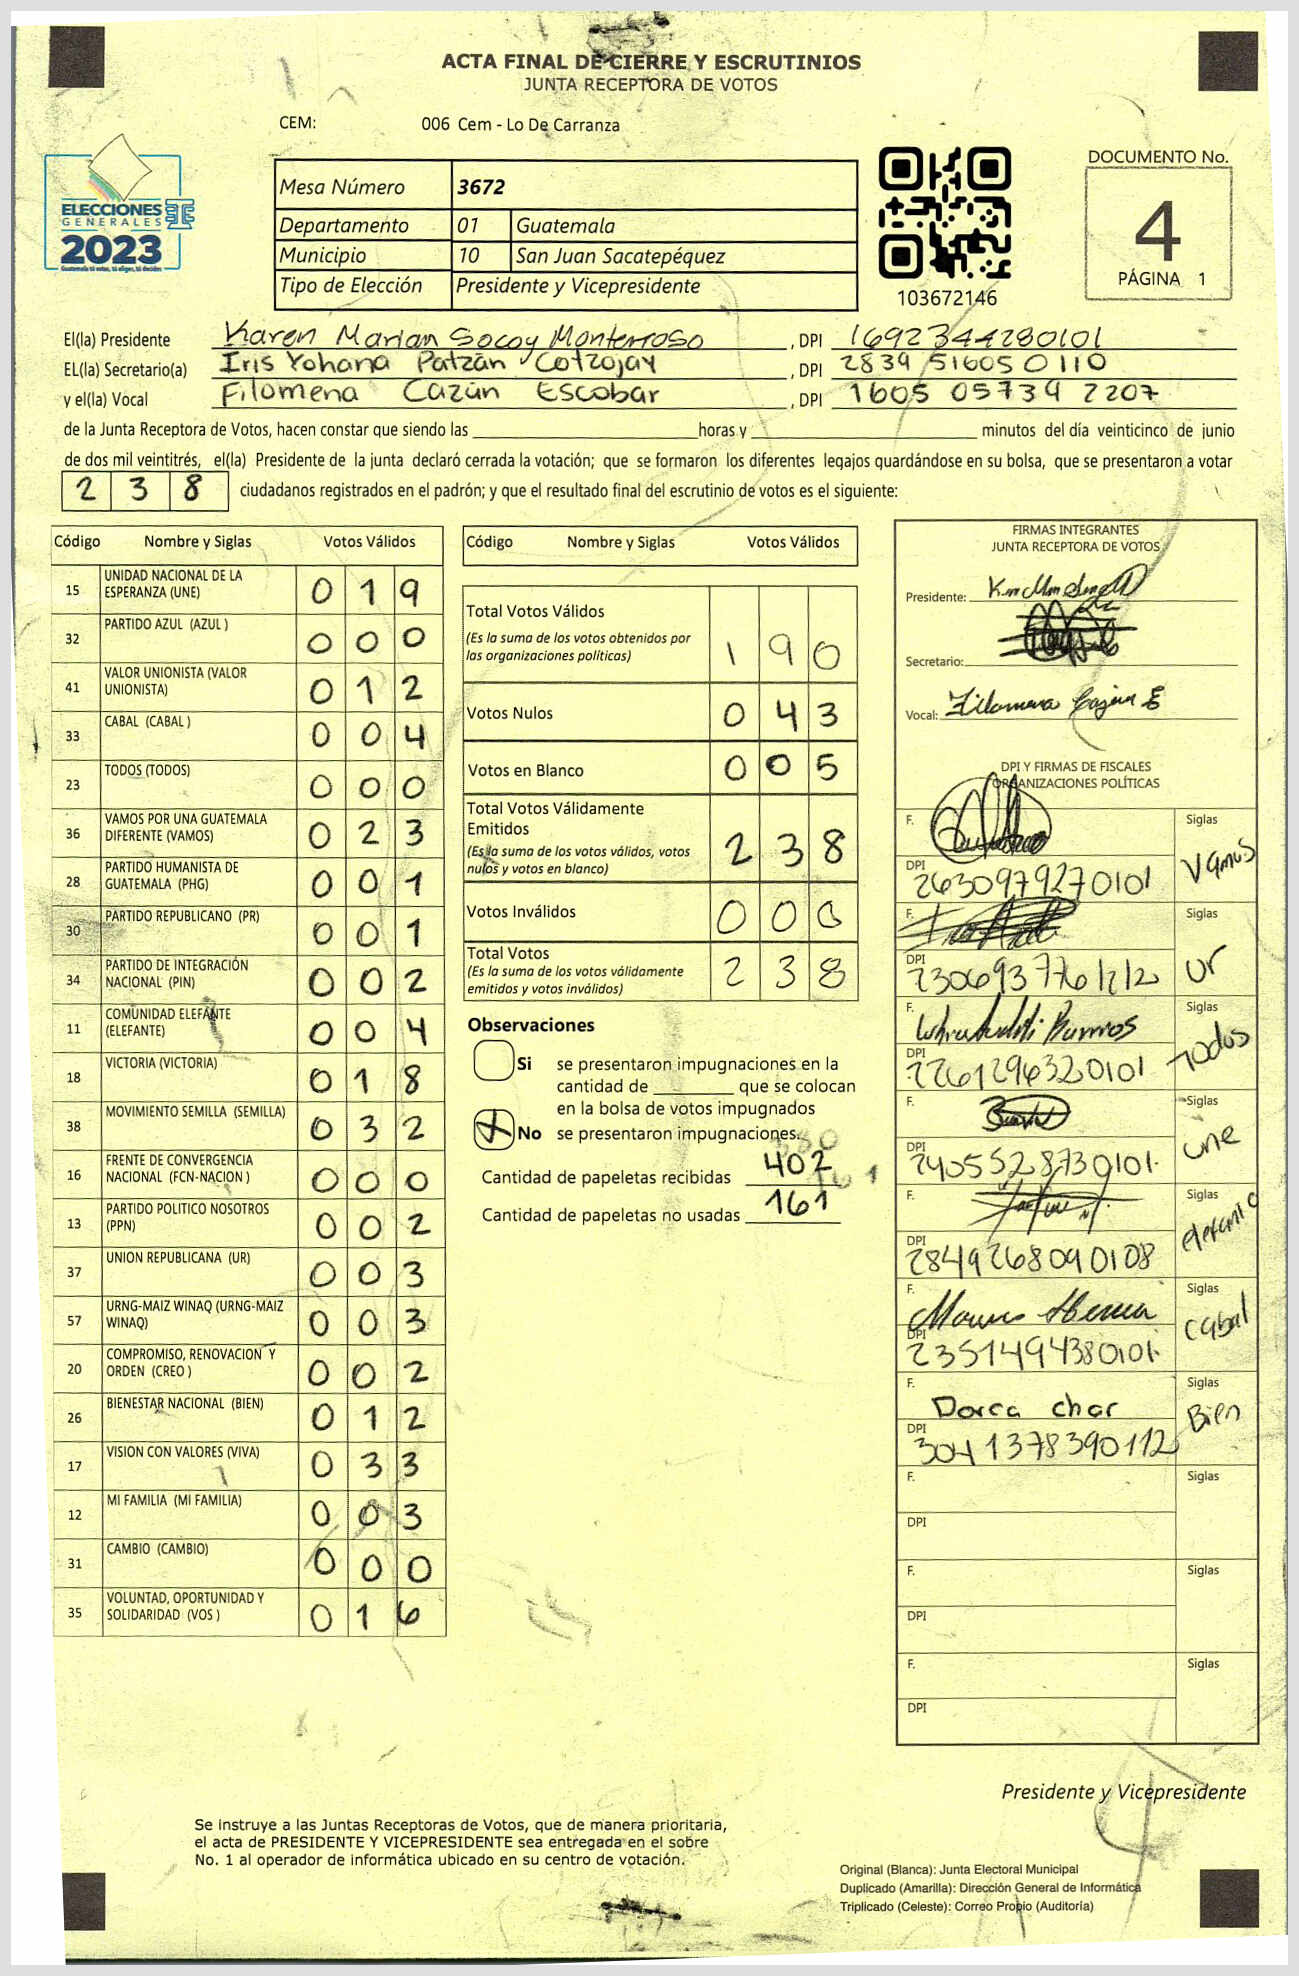 ACTA FINAL DE CIERRE Y ESCRUTINIOS
JUNTA RECEPTORA DE VOTOS
CEM: 006 Cem - Lo De Carranza
ELECCIONES
GENERALES
2023
Guatemala tú votas, tú eliges, tú decides
Mesa Número 3672
Departamento 01 Guatemala
Municipio 10 San Juan Sacatepéquez
Tipo de Elección Presidente y Vicepresidente
103672146
DOCUMENTO No.
4
PÁGINA 1
El(la) Presidente Karen Marian Socoy Monterroso, DPI 1692344280101
EL(la) Secretario(a) Iris Yohana Patzán Cotzojay, DPI 2839 51605 0110
y el(la) Vocal Filomena Cazún Escobar, DPI 1605 05734 2207
de la Junta Receptora de Votos, hacen constar que siendo las horas y minutos del día veinticinco de junio
de dos mil veintitrés, el(la) Presidente de la junta declaró cerrada la votación; que se formaron los diferentes legajos guardándose en su bolsa, que se presentaron a votar
2 3 8 ciudadanos registrados en el padrón; y que el resultado final del escrutinio de votos es el siguiente:
Código Nombre y Siglas Votos Válidos
15 UNIDAD NACIONAL DE LA ESPERANZA (UNE) 0 1 9
32 PARTIDO AZUL (AZUL ) 0 0 0
41 VALOR UNIONISTA (VALOR UNIONISTA) 0 1 2
33 CABAL (CABAL ) 0 0 4
23 TODOS (TODOS) 0 0 0
36 VAMOS POR UNA GUATEMALA DIFERENTE (VAMOS) 0 2 3
28 PARTIDO HUMANISTA DE GUATEMALA (PHG) 0 0 1
30 PARTIDO REPUBLICANO (PR) 0 0 1
34 PARTIDO DE INTEGRACIÓN NACIONAL (PIN) 0 0 2
11 COMUNIDAD ELEFANTE (ELEFANTE) 0 0 4
18 VICTORIA (VICTORIA) 0 1 8
38 MOVIMIENTO SEMILLA (SEMILLA) 0 3 2
16 FRENTE DE CONVERGENCIA NACIONAL (FCN-NACION ) 0 0 0
13 PARTIDO POLITICO NOSOTROS (PPN) 0 0 2
37 UNION REPUBLICANA (UR) 0 0 3
57 URNG-MAIZ WINAQ (URNG-MAIZ WINAQ) 0 0 3
20 COMPROMISO, RENOVACION Y ORDEN (CREO ) 0 0 2
26 BIENESTAR NACIONAL (BIEN) 0 1 2
17 VISION CON VALORES (VIVA) 0 3 3
12 MI FAMILIA (MI FAMILIA) 0 0 3
31 CAMBIO (CAMBIO) 0 0 0
35 VOLUNTAD, OPORTUNIDAD Y SOLIDARIDAD (VOS ) 0 1 6
Código Nombre y Siglas Votos Válidos
Total Votos Válidos 1 9 0
(Es la suma de los votos obtenidos por
las organizaciones políticas)
Votos Nulos 0 4 3
Votos en Blanco 0 0 5
Total Votos Válidamente
Emitidos 2 3 8
(Es la suma de los votos válidos, votos
nulos y votos en blanco)
Votos Inválidos 0 0 0
Total Votos 2 3 8
(Es la suma de los votos válidamente
emitidos y votos inválidos)
Observaciones
Si se presentaron impugnaciones en la
cantidad de que se colocan
en la bolsa de votos impugnados
X No se presentaron impugnaciones.
Cantidad de papeletas recibidas 402
Cantidad de papeletas no usadas 161
FIRMAS INTEGRANTES
JUNTA RECEPTORA DE VOTOS
Presidente:
Secretario:
Vocal: Filomena Cazún E
DPI Y FIRMAS DE FISCALES
ORGANIZACIONES POLÍTICAS
F. Siglas Vamos
DPI 2630979270101
F. Siglas Ur
DPI 2306937761212
F. Siglas Todos
DPI 2261296320101
F. Siglas une
DPI 2405528730101
F. Siglas elefante
DPI 2849268090108
F. Siglas Cabal
DPI 2351494380101
F. Dorca char Siglas Bien
DPI 3041378390112
F. Siglas
DPI
F. Siglas
DPI
F. Siglas
DPI
Presidente y Vicepresidente
Se instruye a las Juntas Receptoras de Votos, que de manera prioritaria,
el acta de PRESIDENTE Y VICEPRESIDENTE sea entregada en el sobre
No. 1 al operador de informática ubicado en su centro de votación.
Original (Blanca): Junta Electoral Municipal
Duplicado (Amarilla): Dirección General de Informática
Triplicado (Celeste): Correo Propio (Auditoría)